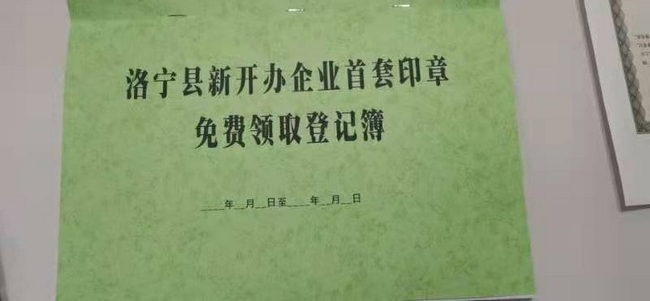 洛宁县新开办企业首套印章
免费领取登记簿
____年__月__日至____年__月__日